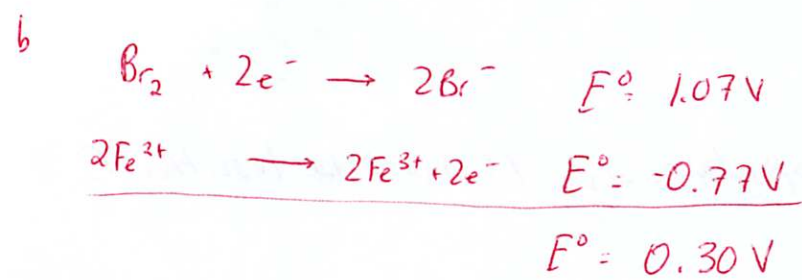 b
Br₂ + 2e⁻ → 2Br⁻ E°= 1.07V
2Fe²⁺ → 2Fe³⁺+2e⁻ E°= -0.77V
E°= 0.30 V